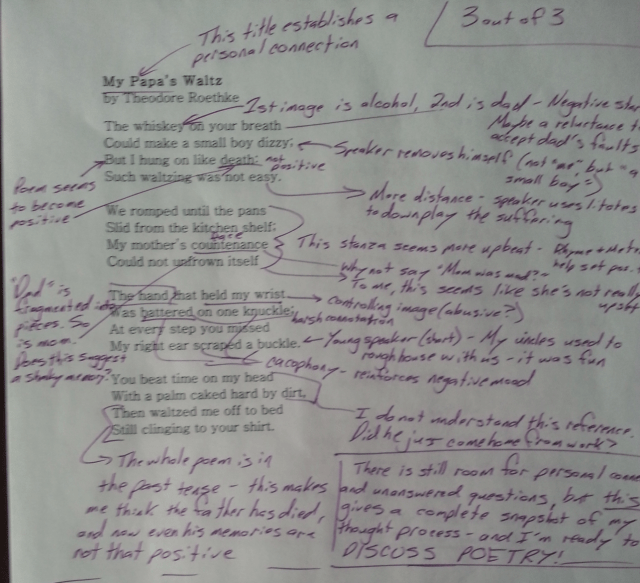 This title establishes a
personal connection
3 out of 3
My Papa's Waltz
by Theodore Roethke
1st image is alcohol, 2nd is dad - Negative
Maybe a reluctance
accept dad's faults
The whiskey on your breath
Could make a small boy dizzy;
But I hung on like death:
Such waltzing was not easy.
not
positive
Speaker removes himself (not "me", but "a
small boy")
Poem seems
to become
positive
More distance - speaker uses litotes
to downplay the suffering
We romped until the pans
Slid from the kitchen shelf;
My mother's countenance
Could not unfrown itself
face
This stanza seems more upbeat - Rhyme + Met
help set pos.
Why not say "Mom was mad?"
To me, this seems like she's not really
"Dad" is
fragmented into
pieces. So
is mom.
Does this suggest
a shaky memory?
The hand that held my wrist
Was battered on one knuckle;
At every step you missed
My right ear scraped a buckle.
controlling image (abusive?)
harsh connotation
Young speaker (short) - My uncles used to
roughhouse with us - it was fun
cacophony - reinforces negative mood
You beat time on my head
With a palm caked hard by dirt,
Then waltzed me off to bed
Still clinging to your shirt.
I do not understand this reference.
Did he just come home from work?
The whole poem is in
the past tense - this makes
me think the father has died,
and now even his memories are
not that positive
There is still room for personal
and unanswered questions, but this
gives a complete snapshot of my
thought process - and I'm ready to
DISCUSS POETRY!